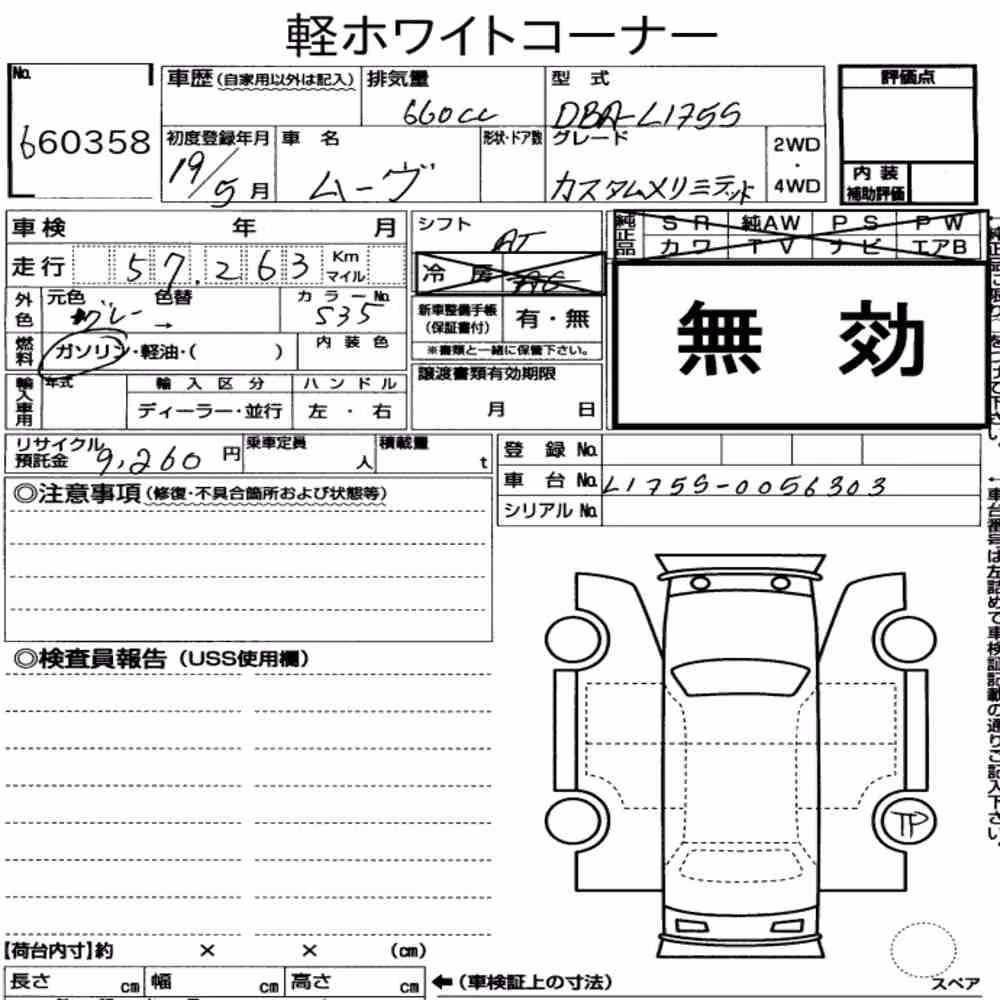 軽ホワイトコーナー
No.
660358
車歴(自家用以外は記入)
排気量
660cc
型式
DBA-L175S
評価点
初度登録年月
19/5月
車名
ムーヴ
形状・ドア数
グレード
カスタムメリミテッド
2WD
・
4WD
内装
補助評価
車検 年 月
シフト
AT
純正品
SR 純AW PS PW
カワ TV ナビ エアB
走行
57,263
Km
マイル
冷房
AC
無効
外色
元色
グレー
→
色替
カラーNo.
S35
新車整備手帳
(保証書付)
有・無
※書類と一緒に保管下さい。
燃料
ガソリン・軽油・( )
内装色
輸入車用
年式
輸入区分
ディーラー・並行
ハンドル
左・右
譲渡書類有効期限
月 日
リサイクル
預託金
9,260円
乗車定員
人
積載量
t
登録No.
車台No.
L175S-0056303
シリアルNo.
◎注意事項(修復・不具合箇所および状態等)
←車台番号は左詰めで車検証記載の通りご記入下さい。
◎検査員報告(USS使用欄)
TP
【荷台内寸】約 × × (cm)
長さ cm 幅 cm 高さ cm
←(車検証上の寸法)
スペア